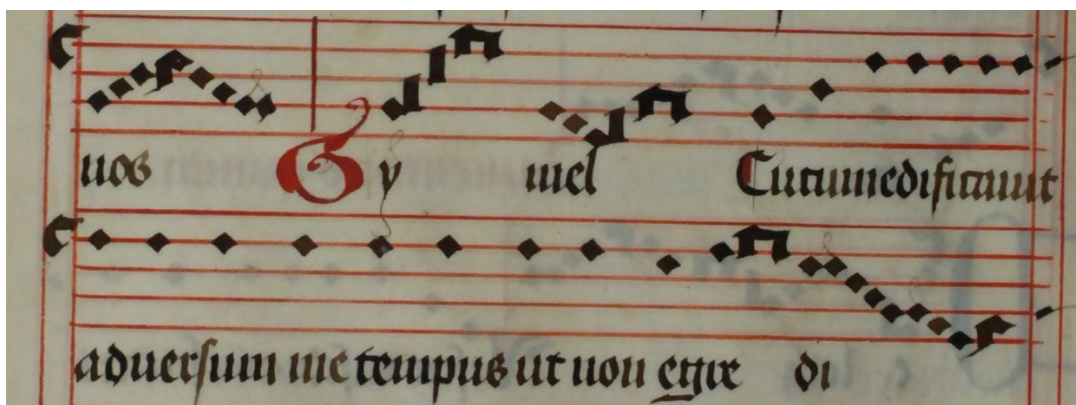 nos Gy mel Circumedificauit
aduersum me tempus ut non egre di